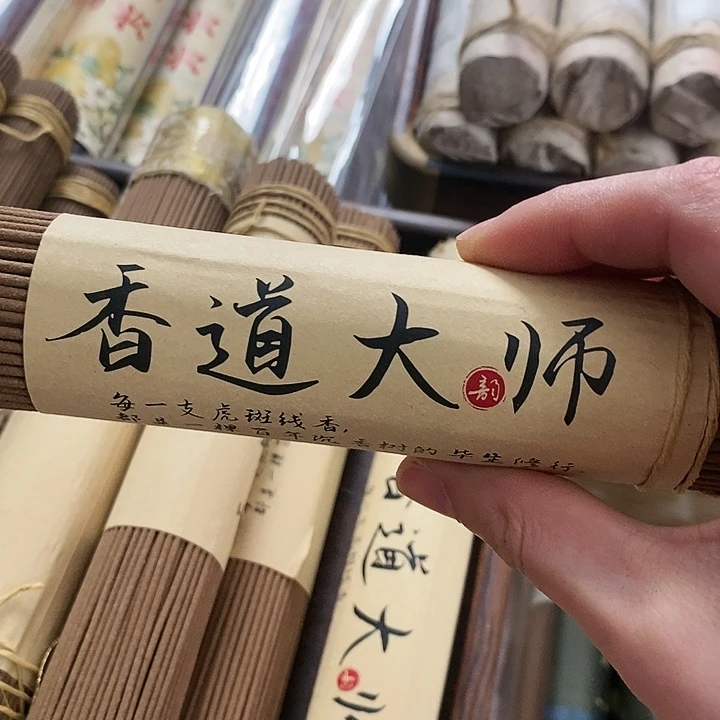 香道大师
韵
每一支虎斑线香,
都是一棵百年沉香树的毕生修行.
香道大师
韵